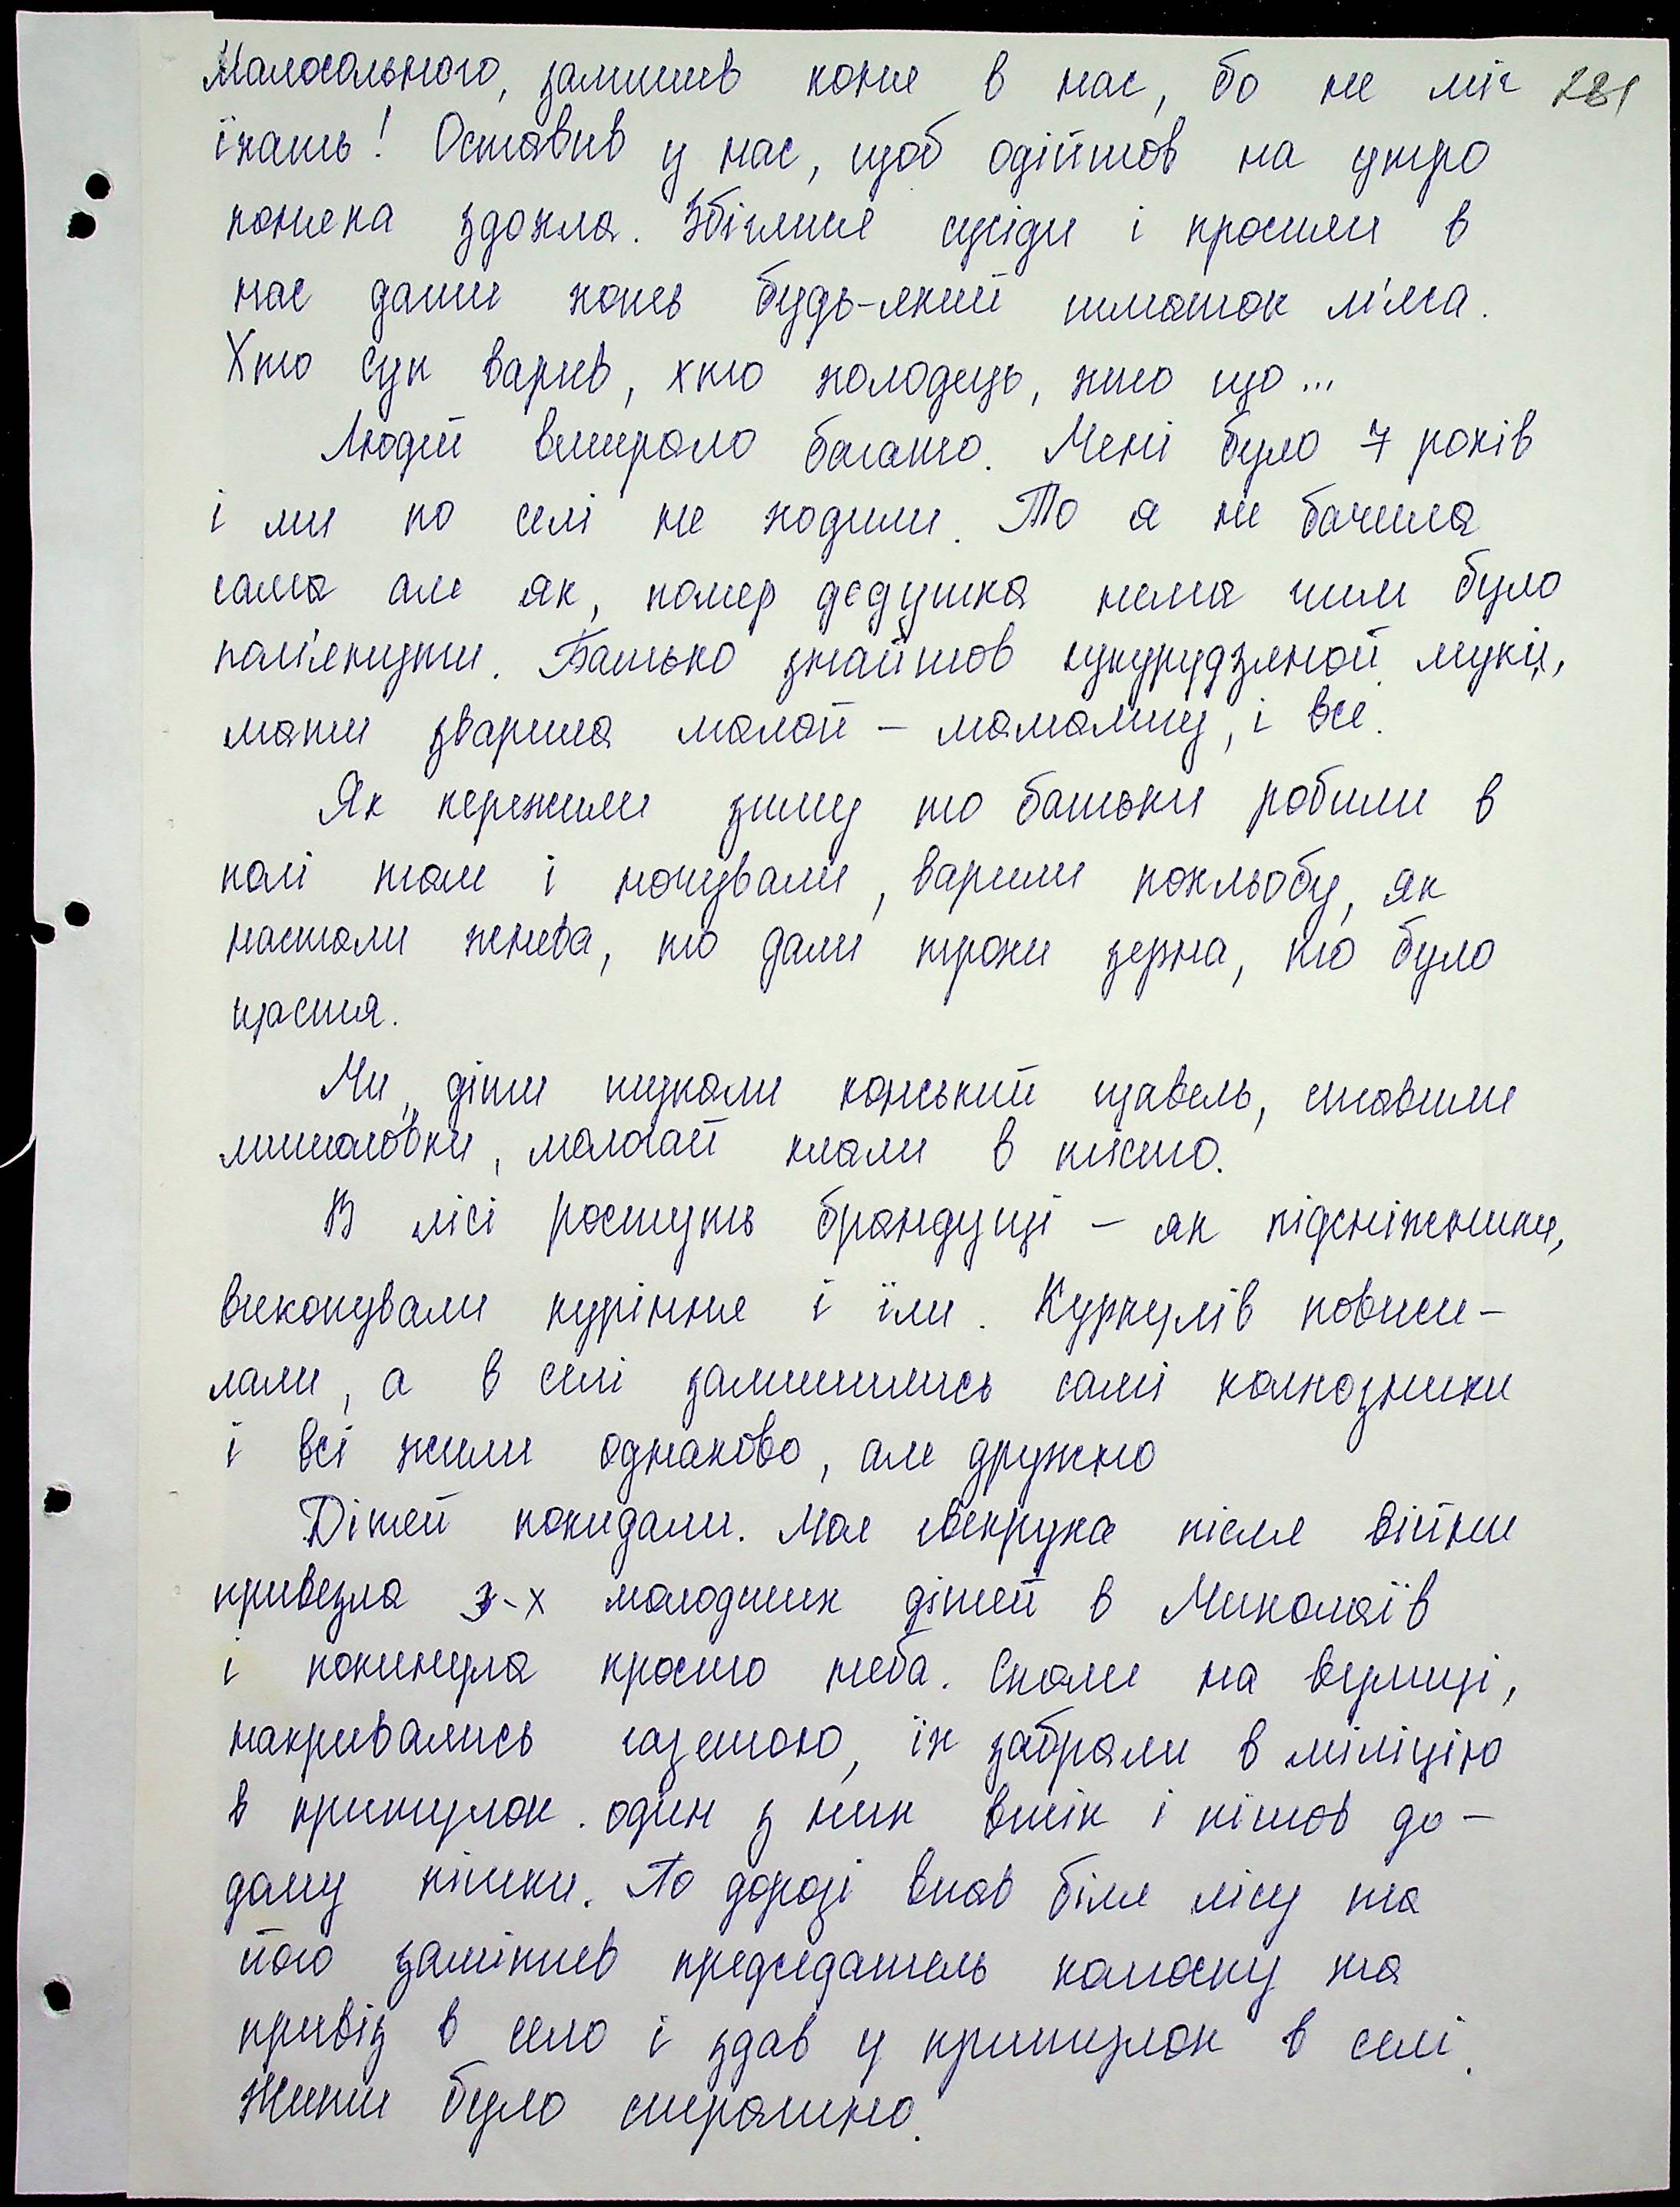 Малосольного, залишив коня в нас, бо не міг 281
їхать! Оставив у нас, щоб одійшов на утро
коняка здохла. Збіглися сусіди і просили в
нас дати хоть будь-який шматок м'яса.
Хто суп варив, хто холодець, хто що...
Людей вмирало багато. Мені було 7 років
і ми по селі не ходили. То я не бачила
сама але як, помер дєдушка нема чим було
пом'янути. Батько знайшов кукурудзяной муки,
мати зварила малай - мамалигу, і все.
Як пережили зиму то батьки робили в
полі там і ночували, варили похльобу, як
настали жнива, то дали трохи зерна, то було
щастя.
Ми, діти шукали конський щавель, ставили
мишоловки, молочай клали в тісто.
В лісі ростуть брандуці - як підсніжники,
викопували куріння і їли. Куркулів повиси-
лали, а в селі залишились самі колхозники
і всі жили однаково, але дружно
Дітей покидали. Моя свекруха після війни
привезла 3-х молодших дітей в Миколаїв
і покинула просто неба. Спали на вулиці,
накривались газетою, їх забрали в міліцію
в притулок. один з них втік і пішов до-
дому пішки. По дорозі впав біля лісу та
його замітив председатель колхозу та
привіз в село і здав у притулок в селі.
Жити було страшно.